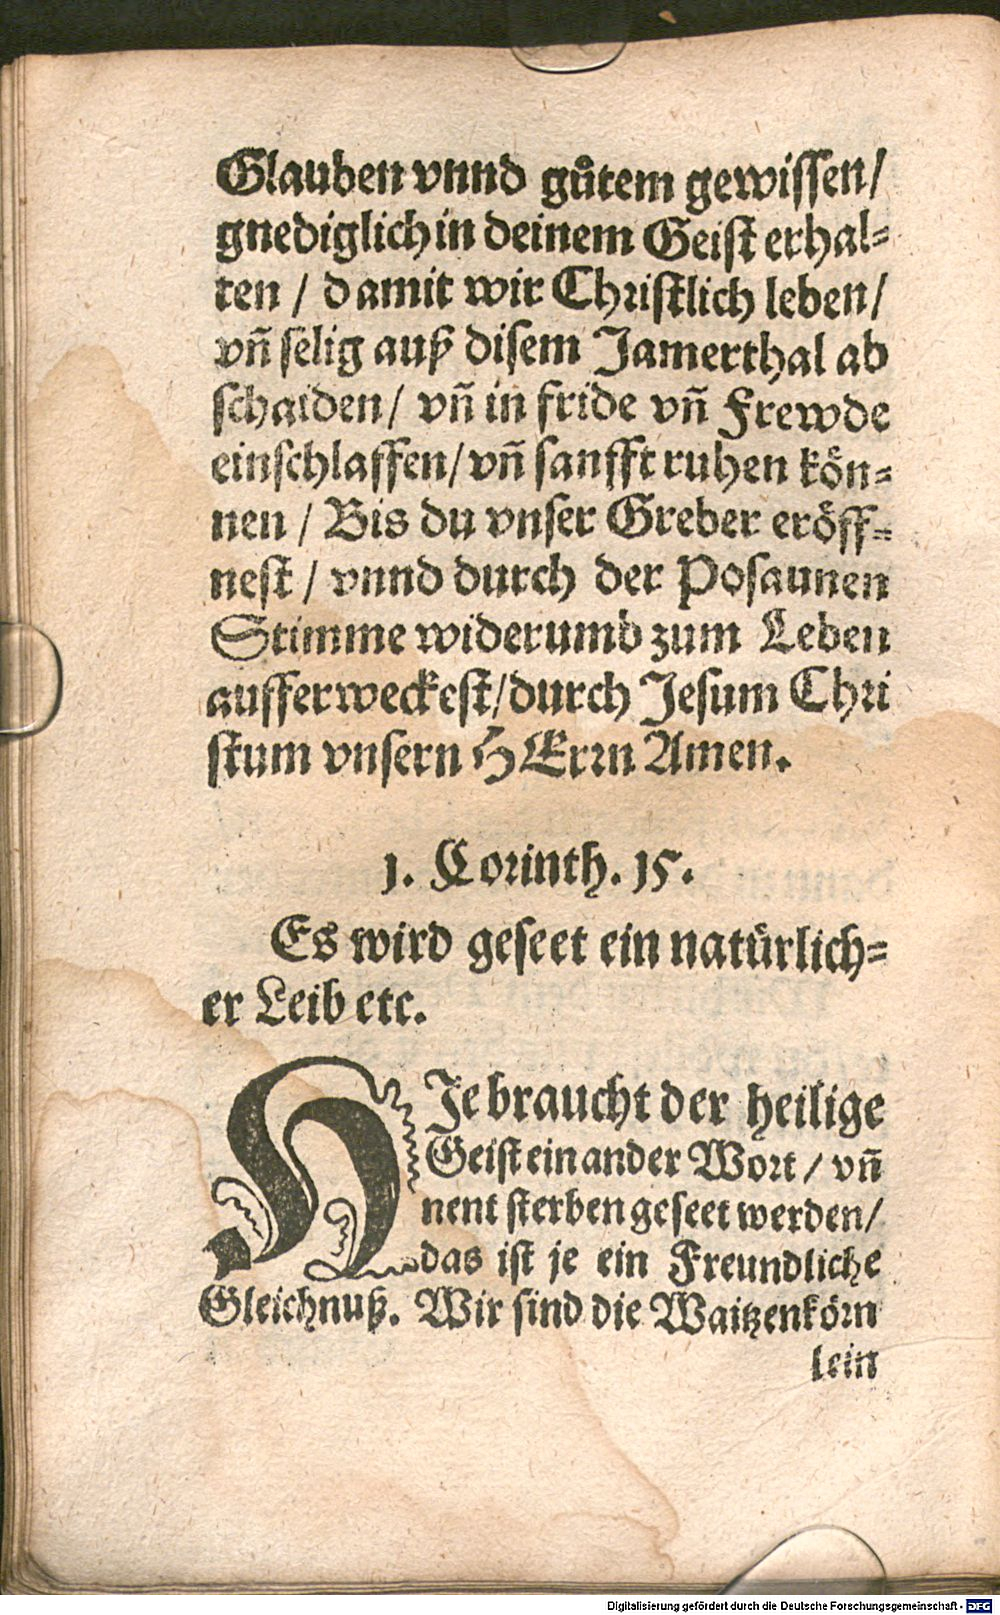 Glauben vnnd gůtem gewissen/
gnediglich in deinem Geist erhal=
ten / damit wir Christlich leben/
vñ selig auß disem Jamerthal ab
schaiden/ vñ in fride vñ Frewde
einschlaffen/ vñ sanfft ruhen kön=
nen / Bis du vnser Greber eröff=
nest / vnnd durch der Posaunen
Stimme widerumb zum Leben
aufferweckest/durch Jesum Chri
stum vnsern HErrn Amen.
1. Corinth. 15.
Es wird geseet ein natürlich=
er Leib etc.
HJe braucht der heilige
Geist ein ander Wort / vñ
nent sterben geseet werden/
das ist je ein Freundliche
Gleichnuß. Wir sind die Waitzenkörn
lein
Digitalisierung gefördert durch die Deutsche Forschungsgemeinschaft - DFG